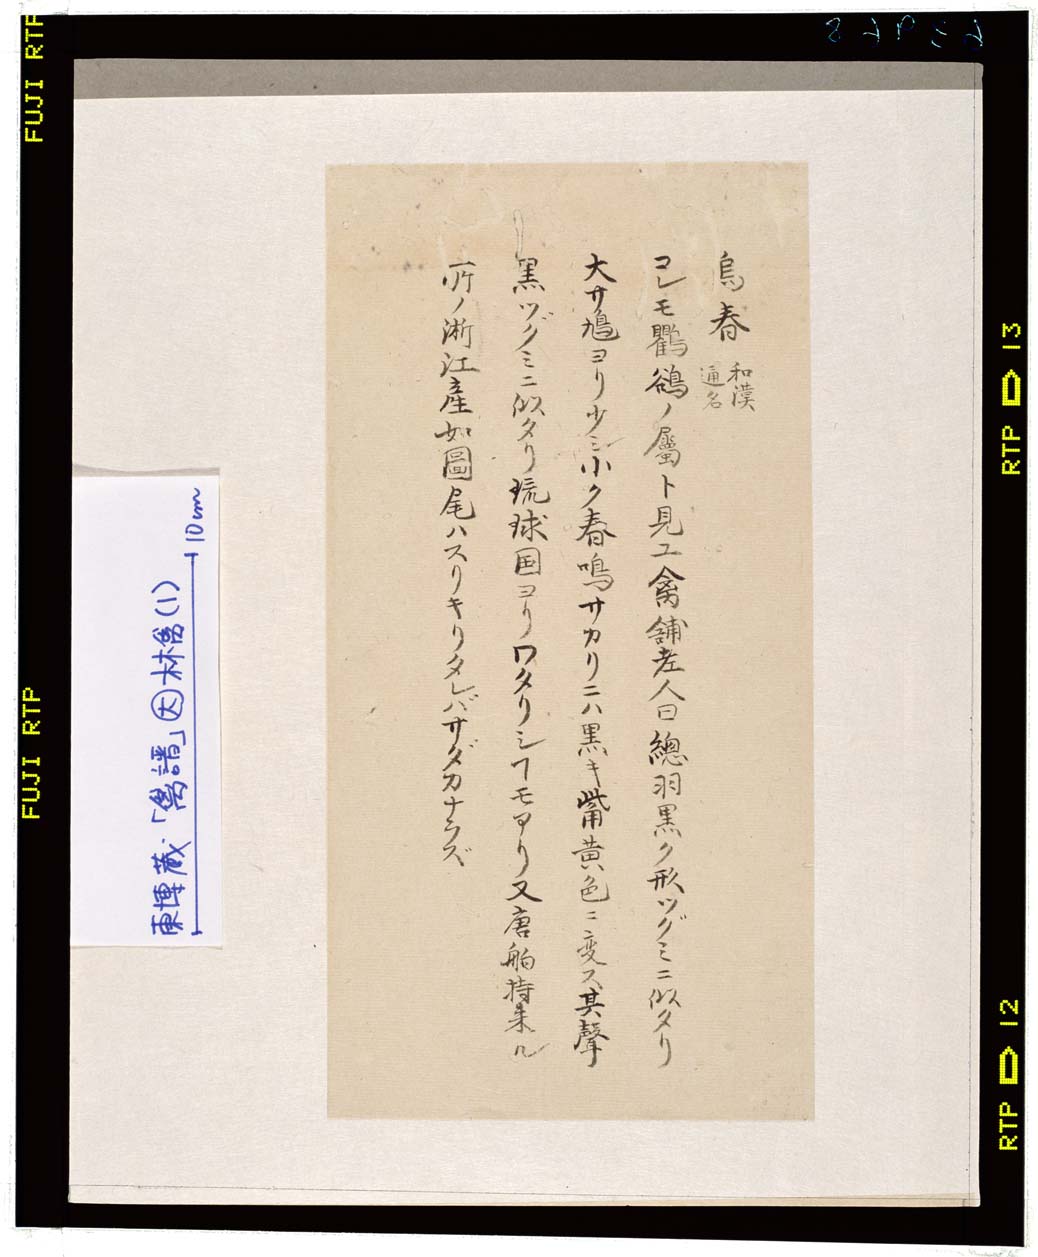 烏春 和漢通名
コレモ鸜鵒ノ屬ト見エ禽舗老人曰總羽黒ク形ツグミニ似タリ
大サ鳩ヨリ少シ小ク春鳴サカリニハ黒キ觜黄色ニ変ス其聲
黒ツグミニ似タリ琉球国ヨリワタリシヿモアリ又唐舶持来ル
所ノ淅江産如圖尾ハスリキリタレバサダカナラズ
東博蔵「鳥譜」因 林禽(1)
10cm
FUJI RTP
FUJI RTP
RTP 13
RTP 12